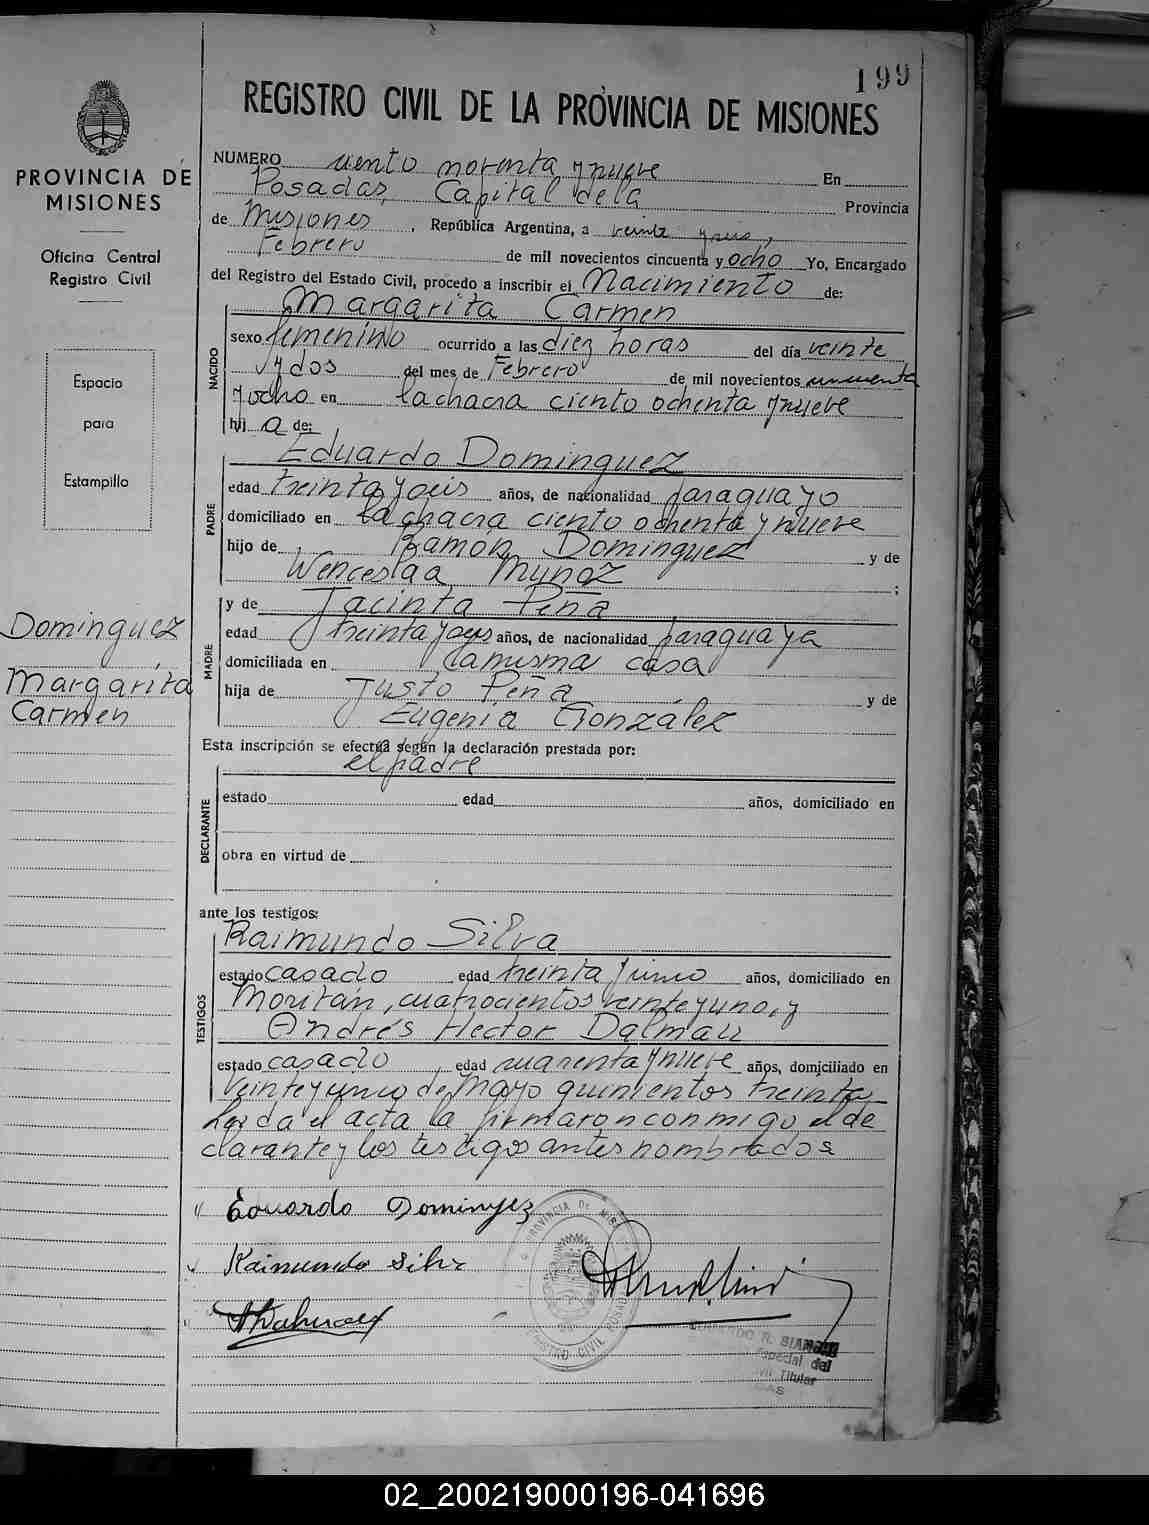 199
REGISTRO CIVIL DE LA PROVINCIA DE MISIONES
PROVINCIA DE
MISIONES
Oficina Central
Registro Civil
Espacio
para
Estampilla
Dominguez
Margarita
Carmen
NUMERO ciento noventa y nueve En
Posadas, Capital de la Provincia
de Misiones, República Argentina, a veinte y seis,
Febrero de mil novecientos cincuenta y ocho Yo, Encargado
del Registro del Estado Civil, procedo a inscribir el Nacimiento de:
NACIDO
Margarita Carmen
sexo femenino ocurrido a las diez horas del día veinte
y dos del mes de Febrero de mil novecientos cincuenta
y ocho en la chacra ciento ochenta y nueve
hij a de:
PADRE
Eduardo Dominguez
edad treinta y seis años, de nacionalidad paraguayo
domiciliado en la chacra ciento ochenta y nueve
hijo de Ramón Dominguez y de
Wenceslaa Muñoz ;
MADRE
y de Jacinta Peña
edad treinta y seis años, de nacionalidad paraguaya
domiciliada en la misma casa
hija de Justo Peña y de
Eugenia González
Esta inscripción se efectúa según la declaración prestada por:
el padre
DECLARANTE
estado edad años, domiciliado en
obra en virtud de
ante los testigos:
TESTIGOS
Raimundo Silva
estado casado edad treinta y cinco años, domiciliado en
cuatrocientos veinte y uno, y
Andrés Hector Dalmau
estado casado, edad cuarenta y nueve años, domiciliado en
Veinte y cinco de Mayo quinientos treinta.
Leida el acta la firmaron conmigo el de
clarante y los testigos antes nombrados
Eduardo Dominguez
Raimundo Silva
PROVINCIA DE MISIONES
REGISTRO CIVIL POSADAS
R. BIANCHI
Especial del
Titular
02_200219000196-041696